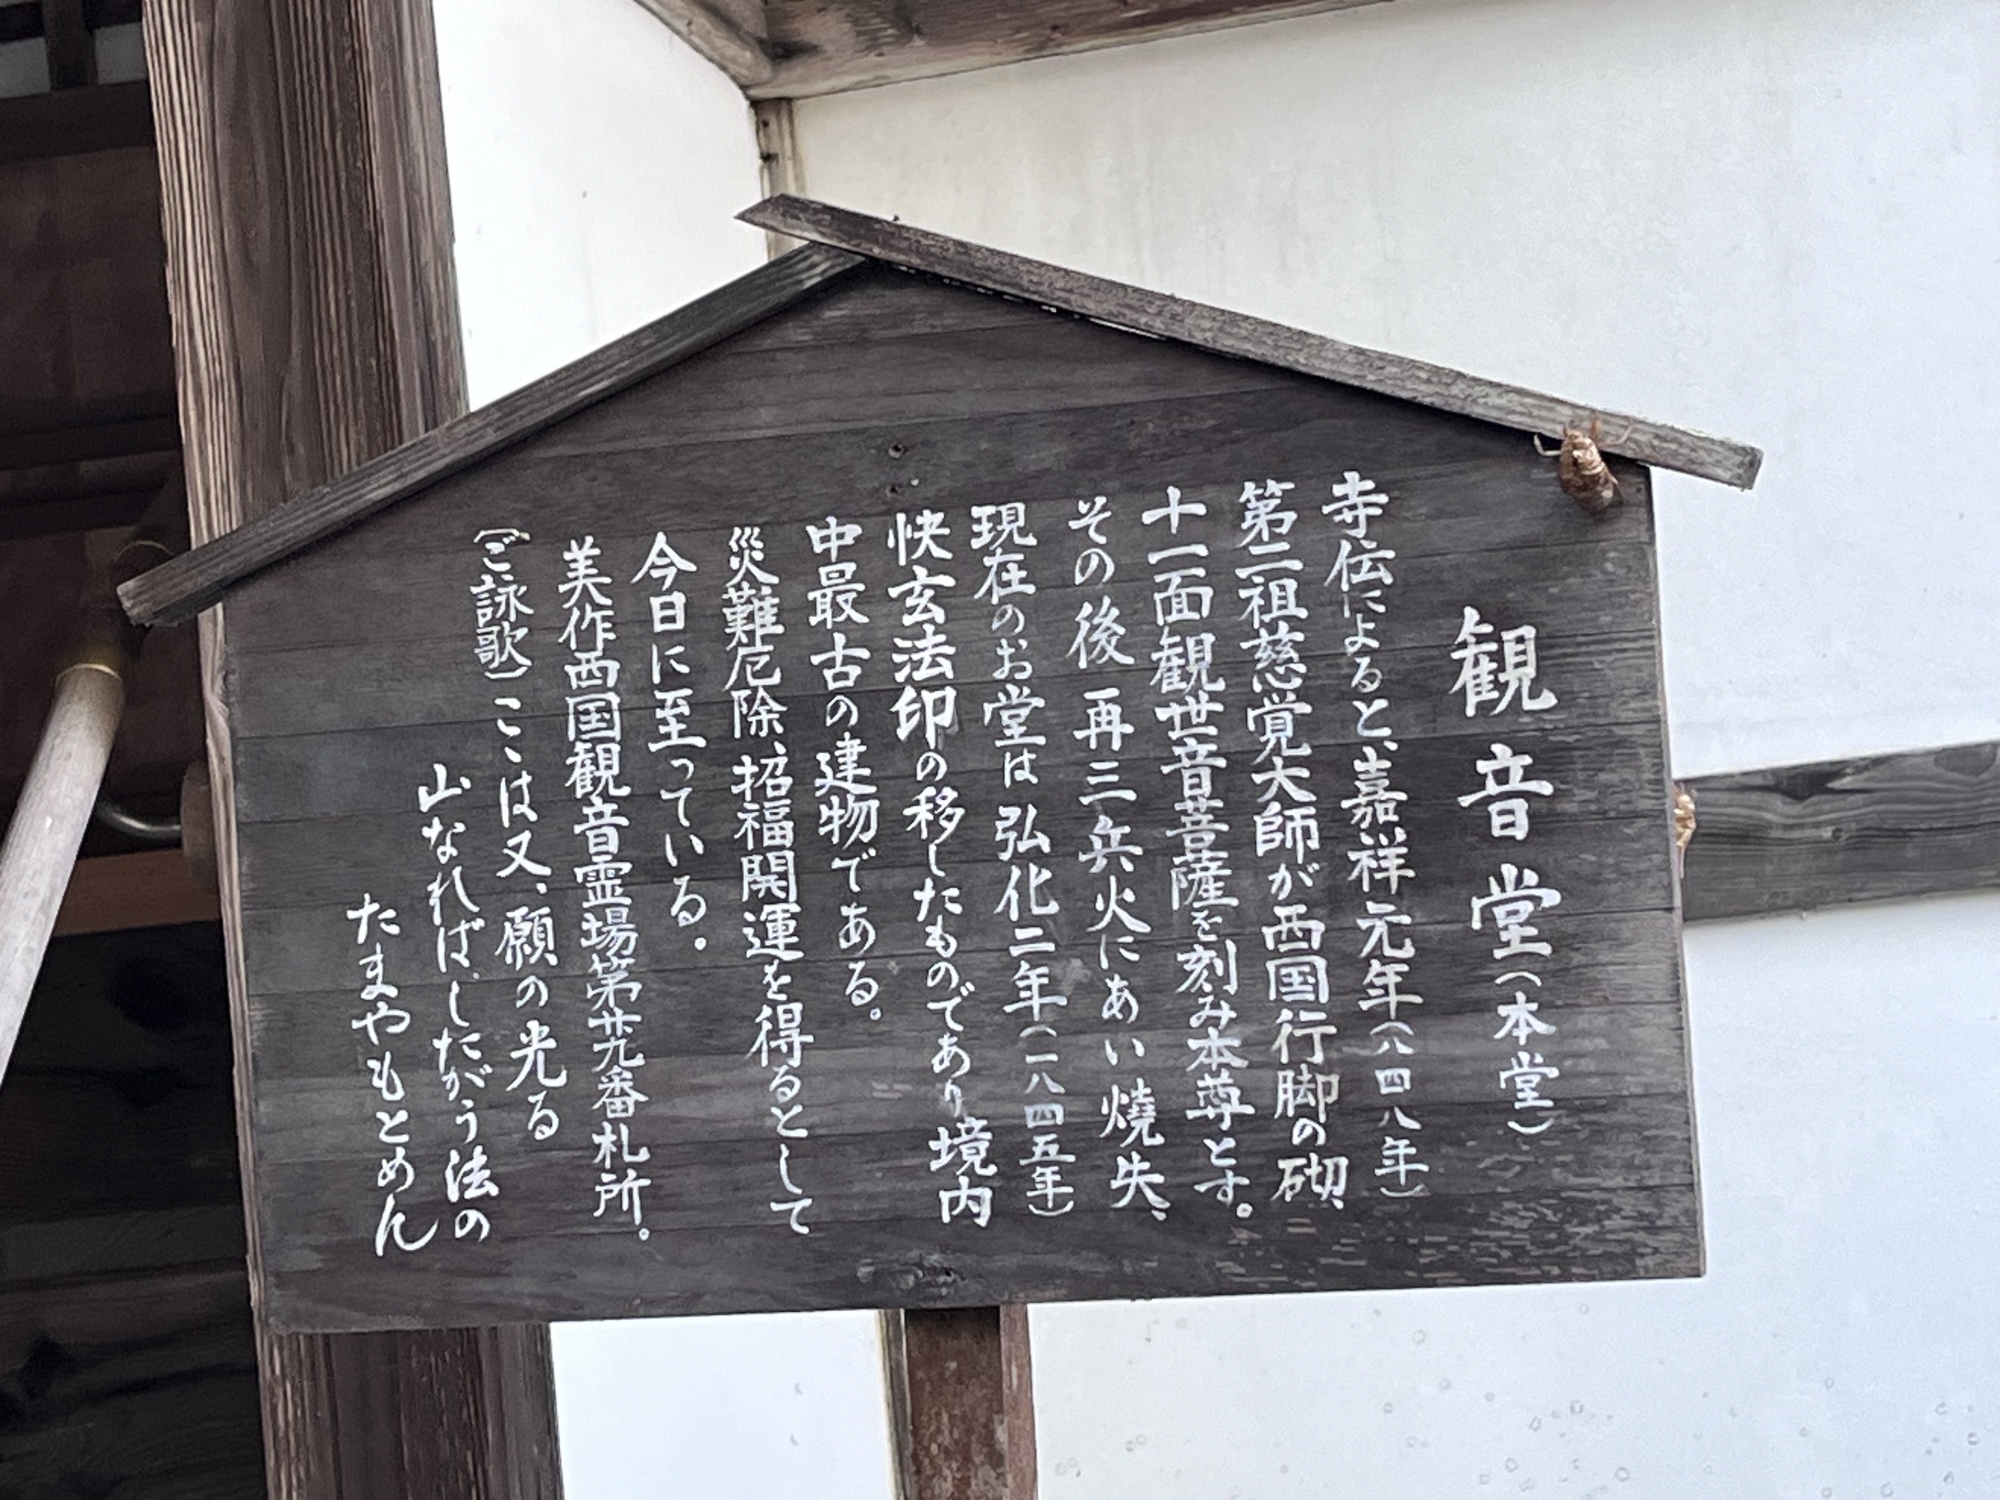 観音堂(本堂)
寺伝によると、嘉祥元年(八四八年)
第二祖慈覚大師が西国行脚の砌、
十一面観世音菩薩を刻み本尊とす。
その後再三兵火にあい焼失、
現在のお堂は弘化二年(一八四五年)
快玄法印の移したものであり境内
中最古の建物である。
災難厄除招福開運を得るとして
今日に至っている。
美作西国観音霊場第廿九番札所。
(ご詠歌)こゝは又、願の光る
山なれば、したがう法の
たまやもとめん